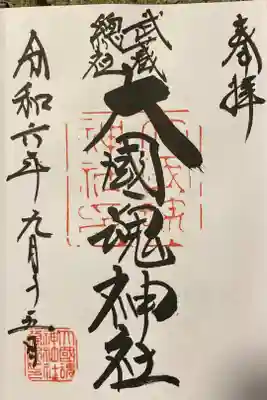 奉拝
武蔵
總社
大國魂神社
令和六年九月十五日